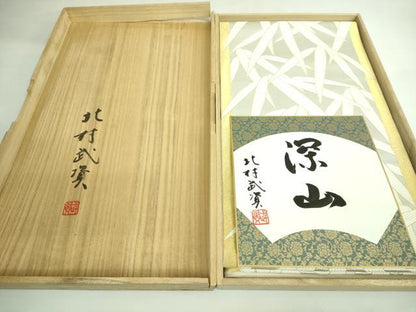 北村武資
深山
北村武資